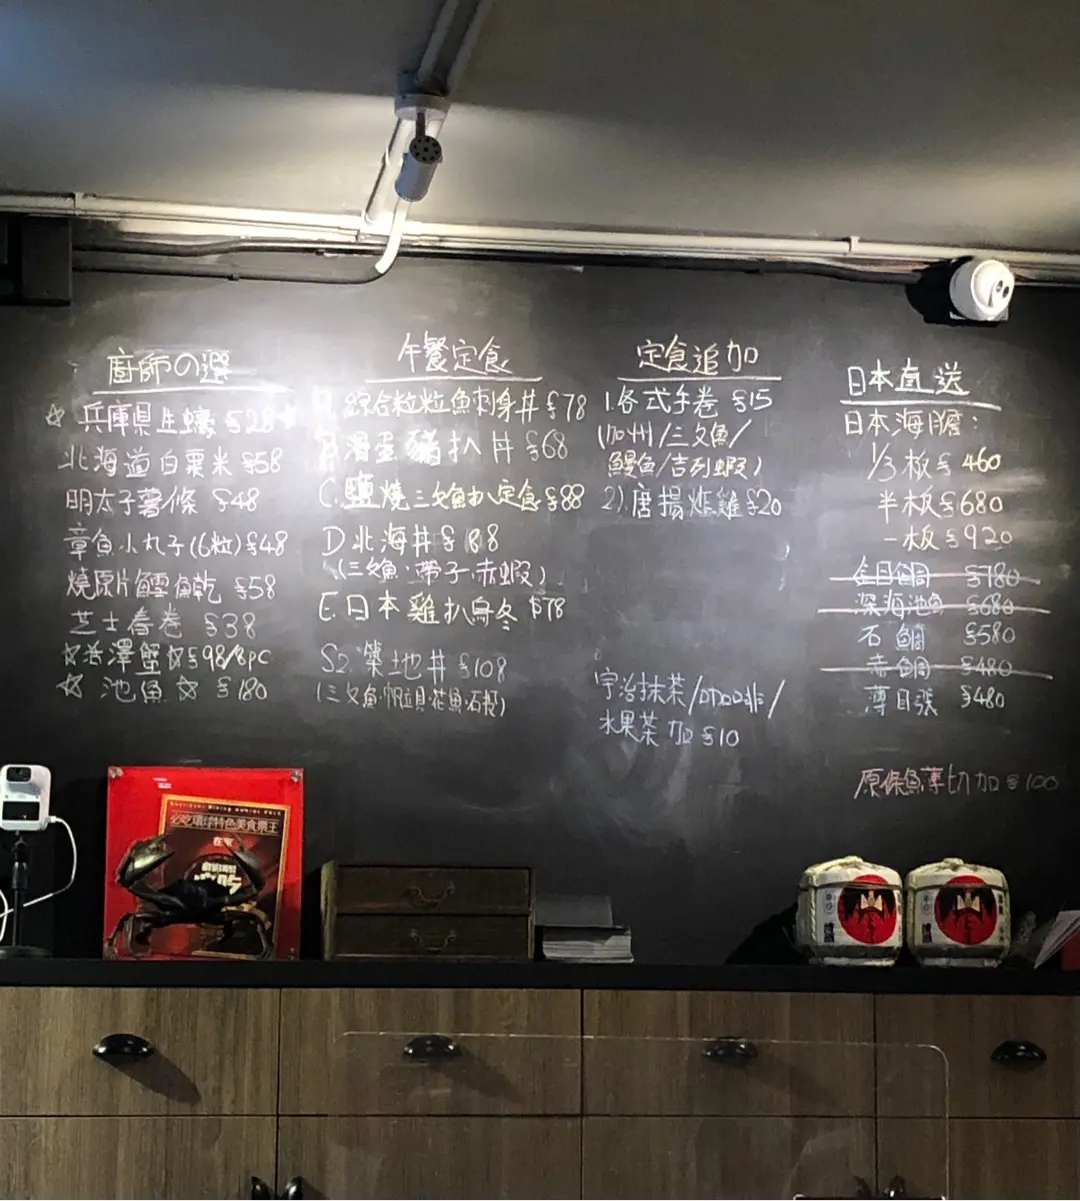 廚師の選
☆ 兵庫県生蠔 $28 ☆
北海道白粟米 $58
明太子薯條 $48
章魚小丸子(6粒) $48
燒原片鱈魚乾 $58
芝士春卷 $38
澤蟹☆$98/8pc
☆ 池魚 ☆ $180
午餐定食
綜合粒粒魚刺身丼 $78
B.滑蛋豬扒丼 $68
C.鹽燒三文魚扒定食 $88
D 北海丼 $188
(三文魚·帶子·赤蝦)
E.日本雞扒烏冬 $78
S2.築地丼 $108
(三文魚·帆立貝·花魚·石
定食追加
1.各式手卷 $15
(加州/三文魚/
鰻魚/吉列蝦)
2).唐揚炸雞 $20
宇治抹茶/咖啡/
水果茶 加 $10
日本直送
日本海膽:
1/3板 $ 460
半板 $680
一板 $920
金目鯛 $780
深海池魚 $680
石鯛 $580
赤鯛 $480
薄目張 $480
原條魚薄切加 $100
必吃環球特色美食票王